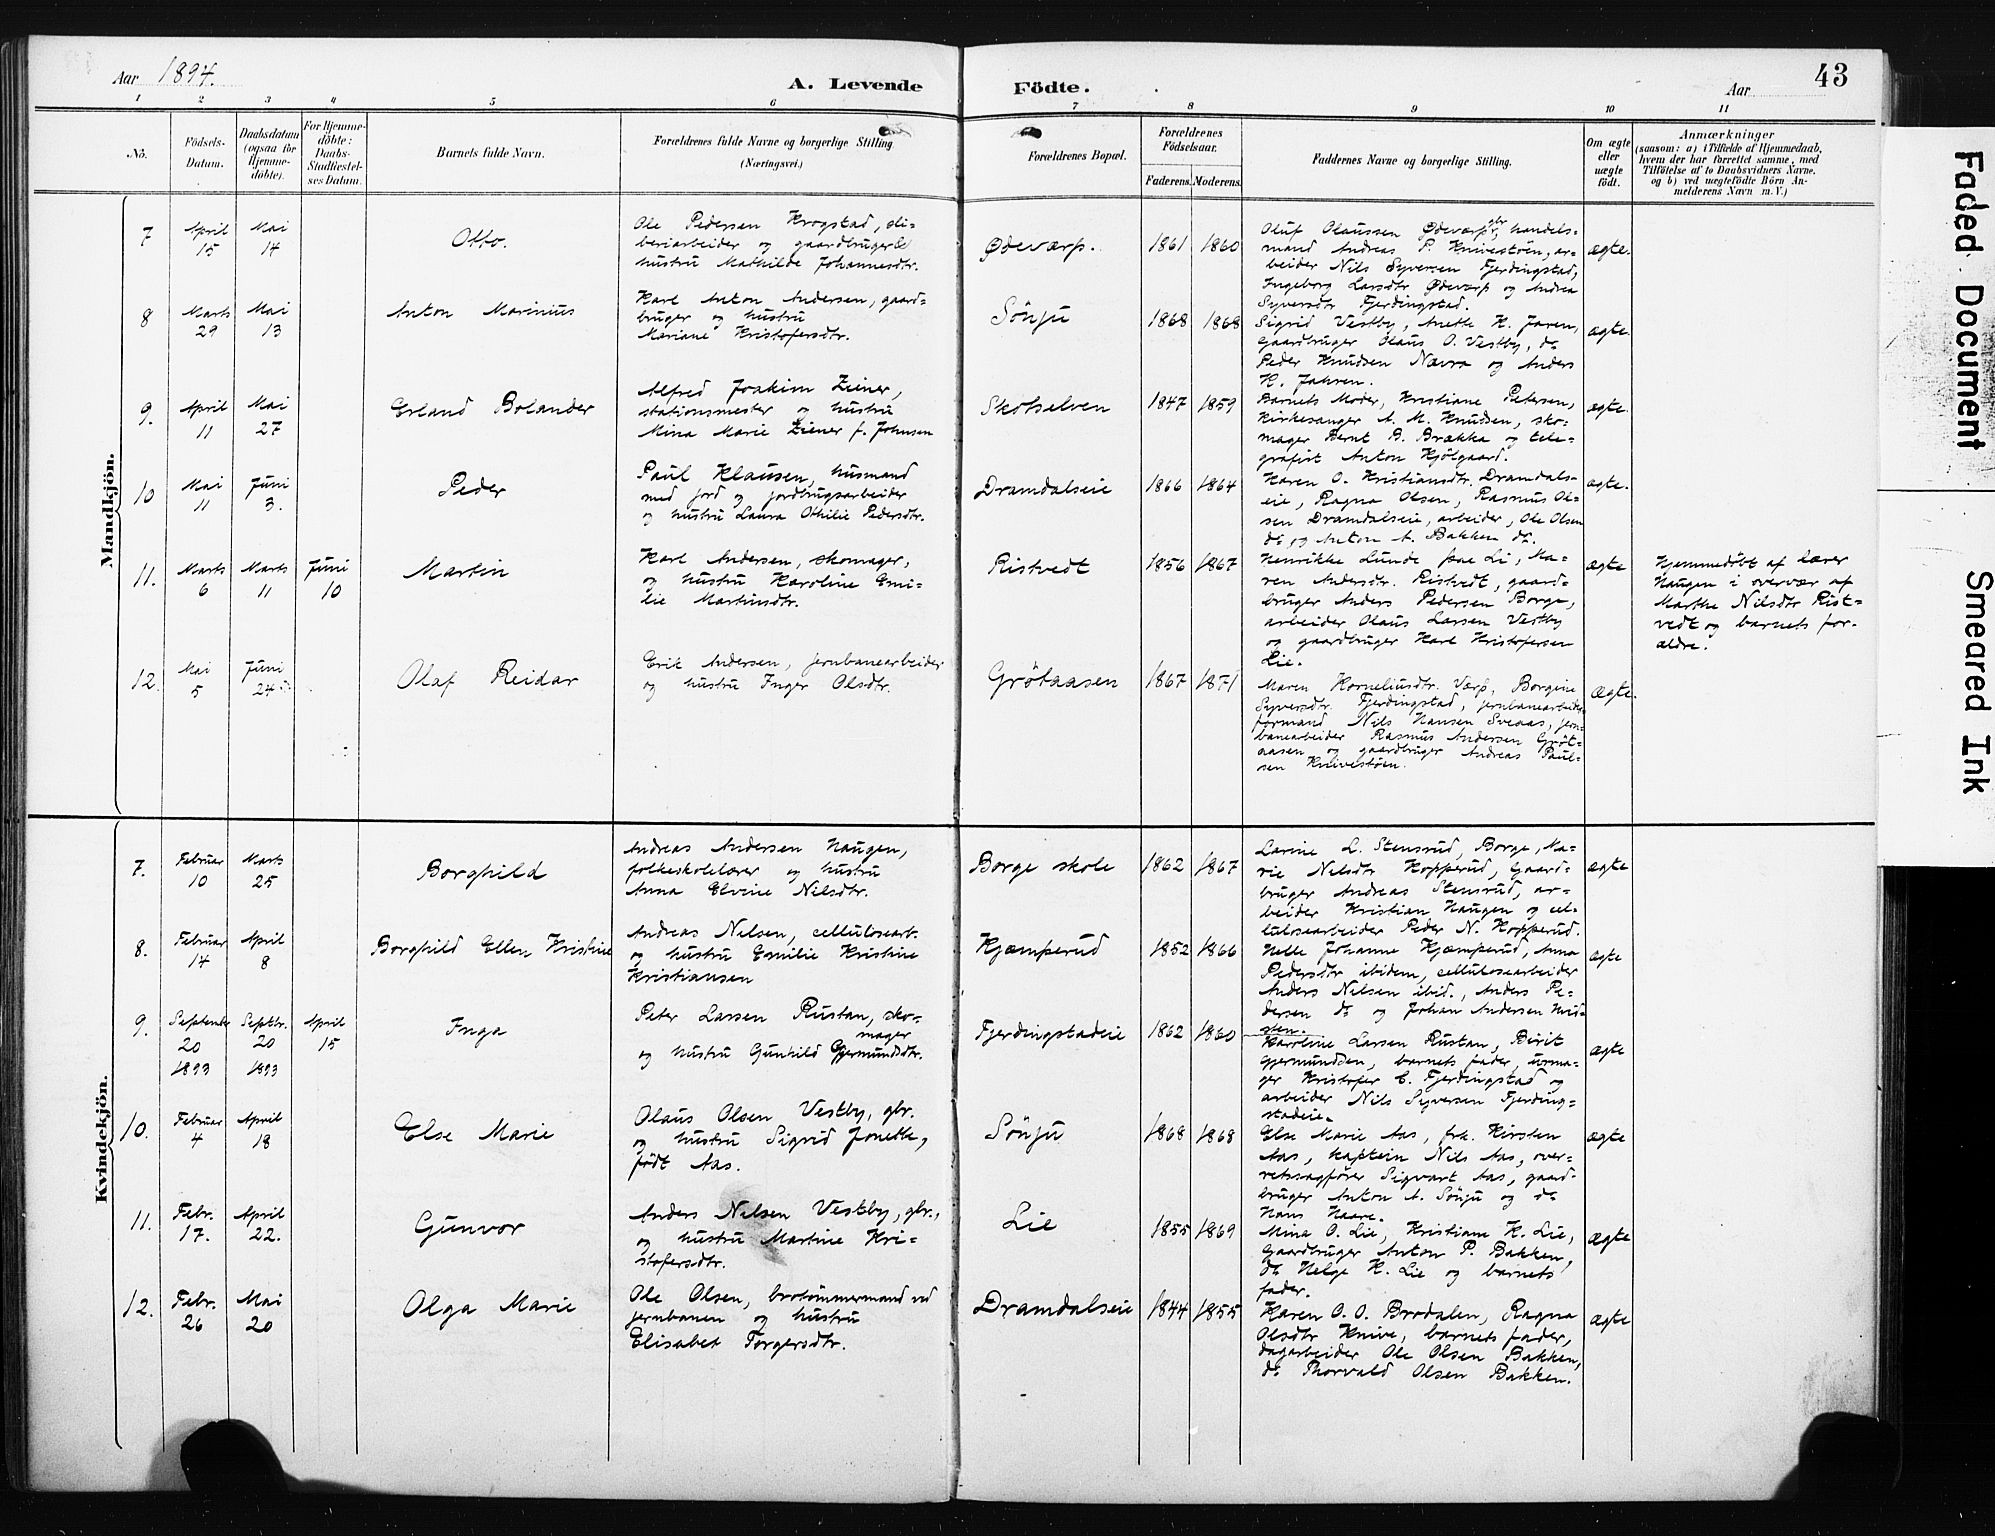 Aar 1894.
A. Levende Födte.
Aar
43
1 2 3 4 5 6 7 8 9 10 11
No.
Födsels-Datum.
Daabsdatum (ogsaa for Hjemme-döbte).
For Hjemme-döbte: Daabs-Stadfæstel-ses Datum.
Barnets fulde Navn.
Forældrenes fulde Navne og borgerlige Stilling (Næringsvei.)
Forældrenes Bopæl.
Forældrenes Födselsaar.
Faderens. Moderens.
Faddernes Navne og borgerlige Stilling.
Om ægte eller uægte födt.
Anmærkninger
(saasom: a) i Tilfælde af Hjemmedaab,
hvem der har forrettet samme, med
Tilföielse af to Daabsvidners Navne,
og b) ved uægtefödte Börn An-
melderens Navn m. V.)
Mandkjön.
7
April 15
Mai 14
Otto.
Ole Pedersen Krogstad, sli-
beriarbeider og gaardbruger &
hustru Mathilde Johannesdtr.
Ødeværp.
1861 1860
Oluf Olaussen Ødeværp, gbr, handels-
mand Andreas P. Knivestöen, ar-
beider Nils Syversen Fjerdingstad,
Ingeborg Larsdtr Ødeværp og Andrea
Syversdtr Fjerdingstad.
ægte.
8
Marts 29
Mai 13
Anton Marinius
Karl Anton Andersen, gaard-
bruger og hustru
Mariane Kristofersdtr.
Sönju
1868 1868
Sigrid Vestby, Anette K. Jaren,
gaardbruger Olaus O. Vestby, do
Peder Knudsen Nævra og Anders
K. Jahren.
ægte.
9.
April 11
Mai 27
Erland Bolander
Alfred Joakim Ziener,
stationsmester og hustru
Mina Marie Ziener f. Johnsen
Skotselven
1847 1859
Barnets Moder, Kristiane Petersen,
kirkesanger A. M. Knudsen, sko-
mager Bernt B. Brække og tele-
grafist Anton Kjölgaard.
ægte.
10
Mai 11
Juni 3.
Peder
Paul Klausen, husmand
med jord og jordbrugsarbeider
og hustru Laura Othilie Pedersdtr.
Dramdalseie
1866 1864
Karen O. Kristiansdtr. Dramdals-
eie, Ragna Olsen, Rasmus Ol-
sen Dramdalseie, arbeider, Ole Olsen
do, og Anton A. Bakken do.
ægte.
11.
Marts 6
Marts 11
Juni 10
Martin
Karl Andersen, skomager,
og hustru Karoline Emi-
lie Martinsdtr.
Ristvedt
1856 1867
Henrikke Lunde paa Li, Ma-
ren Andersdtr. Ristvedt, gaard-
bruger Anders Pedersen Borge,
arbeider Olaus Larsen Vestby
og gaardbruger Karl Kristofersen
Lie.
ægte
Hjemmedöbt af lærer
Haugen i overvær af
Marthe Nilsdtr Rist-
vedt og barnets for-
ældre.
12.
Mai 5
Juni 24
Olaf Reidar
Erik Andersen, jernbanearbeider
og hustru Inger Olsdtr.
Grötaasen
1867 1871
Maren Korneliusdtr. Værp, Borgine
Syversdtr. Fjerdingstad, jernbanearbeider
formand Nils Hansen Sveaas, jern-
banearbeider Rasmus Andersen Gröt-
aasen og gaardbruger Andreas Paul-
sen Knivestöen.
ægte.
Kvindekjön.
7.
Februar 10
Marts 25
Borghild
Andreas Andersen Haugen,
folkeskolelærer og hustru
Anna Elvine Nilsdtr.
Borge skole
1862 1867
Larine L. Stensrud, Borge, Ma-
rie Nilsdtr Hopperud, Gaard-
bruger Andreas Stensrud, ar-
beider Kristian Haugen og cel-
lulosearbeider Peder N. Hopperud.
ægte
8.
Februar 14
April 8
Borghild Ellen Kristine
Andreas Nilsen, cellulosearb.
og hustru Emilie Kristine
Kristiansen
Kjæmperud
1852 1866
Helle Johanne Kjæmperud, Anna
Pedersdtr ibidem, cellulosearbeider
Anders Nilsen ibid., Anders Pe-
dersen do og Johan Andersen

ægte
9.
September 20 1893
Septbr. 20 1893
April 15
Inga
Peter Larsen Rustan, sko-
mager
og hustru Gunhild Gjermundsdtr.
Fjerdingstadeie
1862 1860
Karoline Larsen Rustan, Birit
Gjermundsen, barnets fader, urma-
ger Kristofer C. Fjerdingstad og
arbeider Nils Syversen Fjerding-
stadeie.
ægte
10.
Februar 4
April 18
Else Marie
Olaus Olsen Vestby, gbr.
og hustru Sigrid Jonette,
födt Aas.
Sönju
1868 1868
Else Marie Aas, frk. Kirsten
Aas, kaptein Nils Aas, over-
retssagförer Sigvart Aas, gaard-
bruger Anton A. Sönju og do
Hans Haare.
ægte
11.
Febr. 17.
April 22.
Gunvor
Anders Nilsen Vestby, gbr.,
og hustru Martine Kri-
stofersdtr.
Lie
1855 1869
Mina O. Lie, Kristiane K. Lie,
Gaardbruger Anton P. Bakken,
do Helge K. Lie og barnets
fader.
ægte
12.
Febr. 26
Mai 20
Olga Marie
Ole Olsen, brotömmermand ved
jernbanen og hustru
Elisabet Torgersdtr.
Dramdalseie
1844 1855
Karen O. O. Brodalen, Ragna
Olsdtr Knive, barnets fader,
dagarbeider Ole Olsen Bakken,
do Thorvald Olsen Bakken.
ægte
Faded Document
Smeared Ink